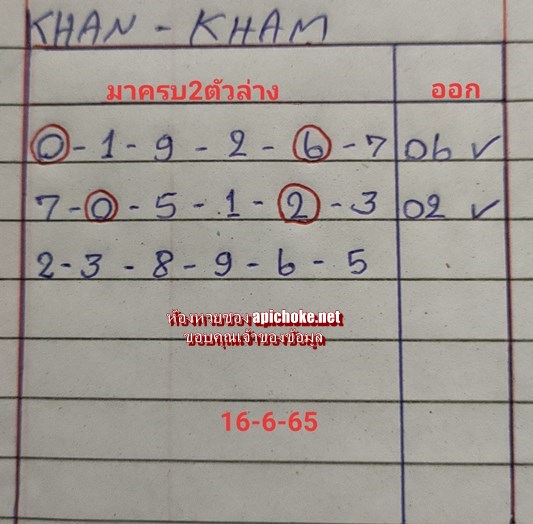 KHAN - KHAM
มาครบ2ตัวล่าง ออก
0-1-9-2-6-7 06 ✓
7-0-5-1-2-3 02 ✓
2-3-8-9-6-5
ห้องหวยของ apichoke.net
ขอบคุณเจ้าของข้อมูล
16-6-65